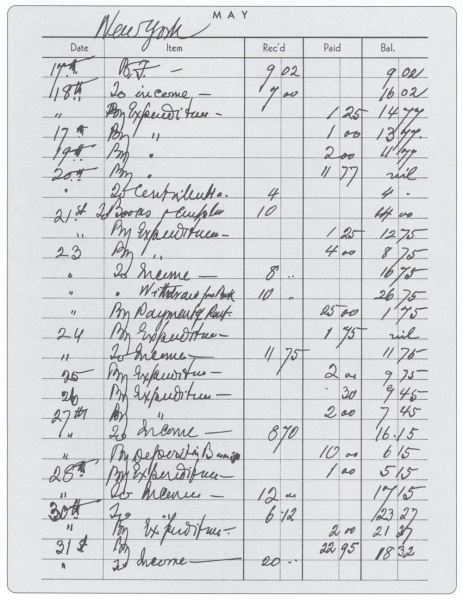 MAY
New York
Date Item Rec'd Paid Bal.
17th B.F. — 9 02 9 02
18th To income — 7 00 16 02
" By Expenditure — 1 25 14 77
17th By " 1 00 13 77
19th By " 2 00 11 77
20th By " 11 77 nil
" To Contributn. 4 4 "
21st To Books & 10 14 00
" By Expenditure — 1 25 12 75
23 By " — 4 00 8 75
" To Income — 8 .. 16 75
" " Withdrawal from Bank 10 .. 26 75
" By Payment of Rent. 25 00 1 75
24 By Expenditure — 1 75 nil
" To Income — 11 75 11 75
25 By Expenditure — 2 00 9 75
26 By Expenditure — 30 9 45
27th By " 2 00 7 45
" To Income — 8 70 16 15
" By Deposit in 10 00 6 15
28th By Expenditure — 1 00 5 15
" To Income — 12 00 17 15
30th To " 6.12 23 27
" By Expenditure. 2 00 21 27
31st By 22 95 18 32
" To Income — 20 ..